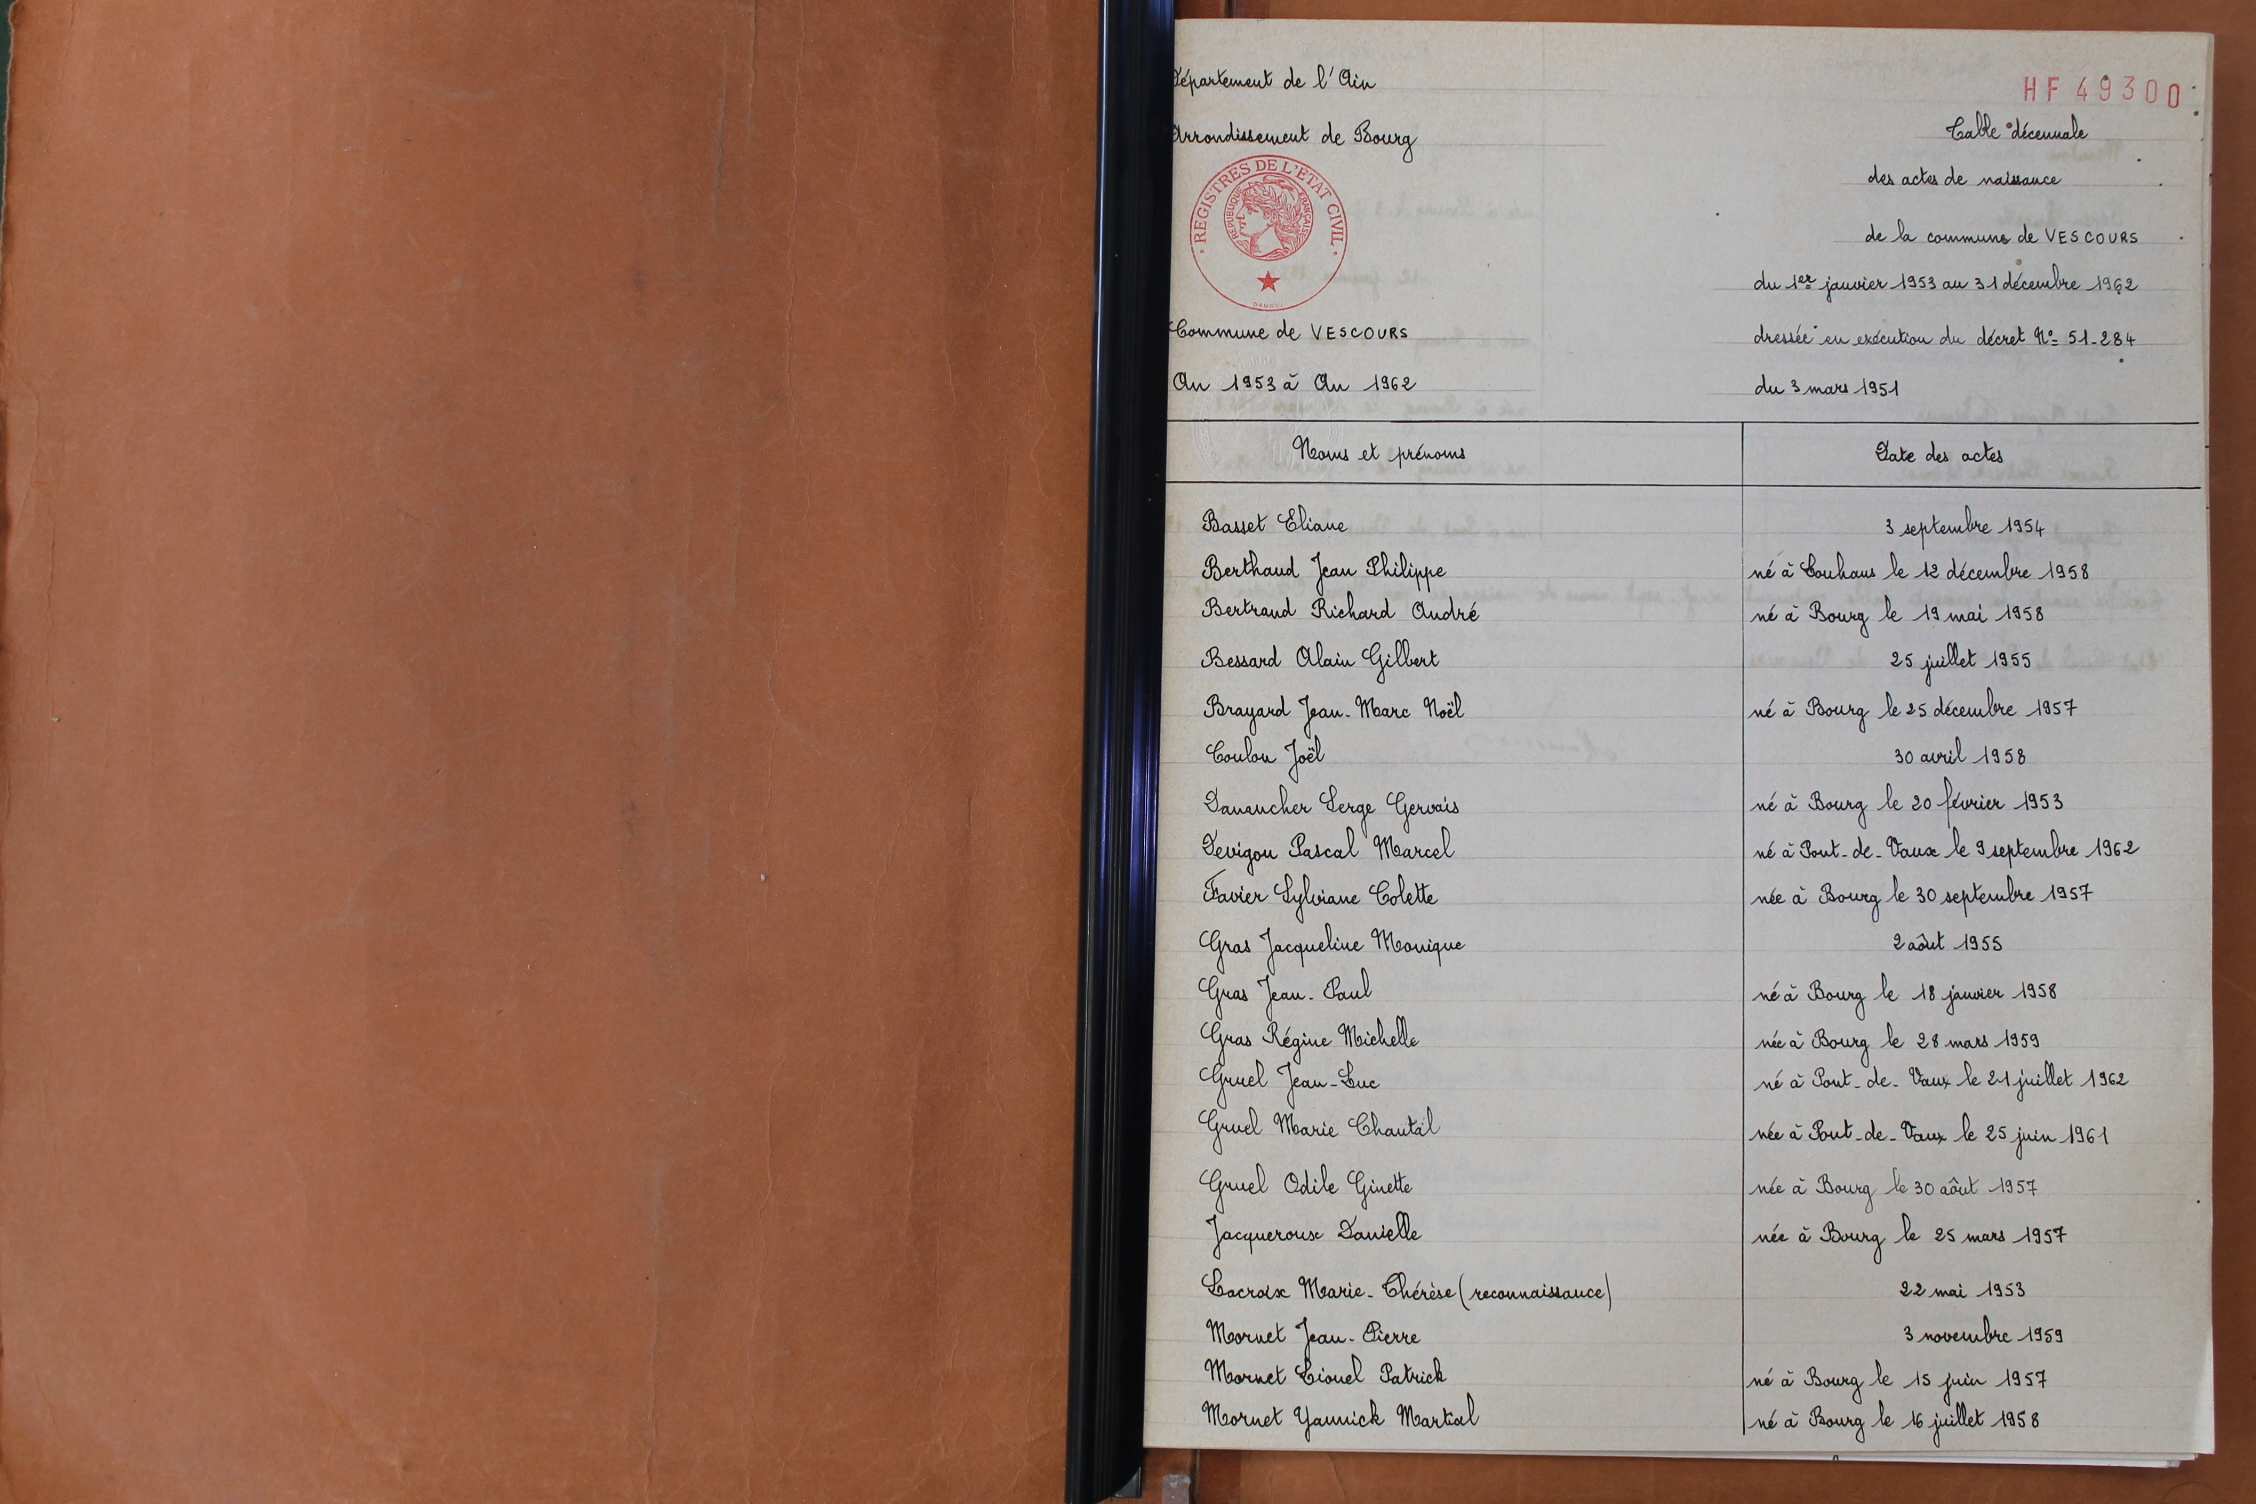 Département de l'Ain
HF 49300
Arrondissement de Bourg
Table décennale
des actes de naissance
REGISTRES DE L'ETAT CIVIL
REPUBLIQUE FRANÇAISE
de la commune de VESCOURS
du 1er janvier 1953 au 31 décembre 1962
Commune de VESCOURS
dressée en exécution du décret No 51-284
An 1953 à An 1962
du 3 mars 1951
Noms et prénoms
Date des actes
Basset Eliane 3 septembre 1954
Berthaud Jean Philippe né à Louhans le 12 décembre 1958
Bertrand Richard André né à Bourg le 19 mai 1958
Bessard Alain Gilbert 25 juillet 1955
Brayard Jean-Marc Noël né à Bourg le 25 décembre 1957
Coulon Joël 30 avril 1958
Danancher Serge Gervais né à Bourg le 20 février 1953
Devigon Pascal Marcel né à Pont-de-Vaux le 9 septembre 1962
Favier Sylviane Colette née à Bourg le 30 septembre 1957
Gras Jacqueline Monique 2 août 1955
Gras Jean-Paul né à Bourg le 18 janvier 1958
Gras Régine Michelle née à Bourg le 28 mars 1959
Gruel Jean-Luc né à Pont-de-Vaux le 21 juillet 1962
Gruel Marie Chantal née à Pont-de-Vaux le 25 juin 1961
Gruel Odile Ginette née à Bourg le 30 août 1957
Jacqueroux Danielle née à Bourg le 25 mars 1957
Lacroix Marie-Thérèse (reconnaissance) 22 mai 1953
Mornet Jean-Pierre 3 novembre 1959
Mornet Lionel Patrick né à Bourg le 15 juin 1957
Mornet Yannick Martial né à Bourg le 16 juillet 1958